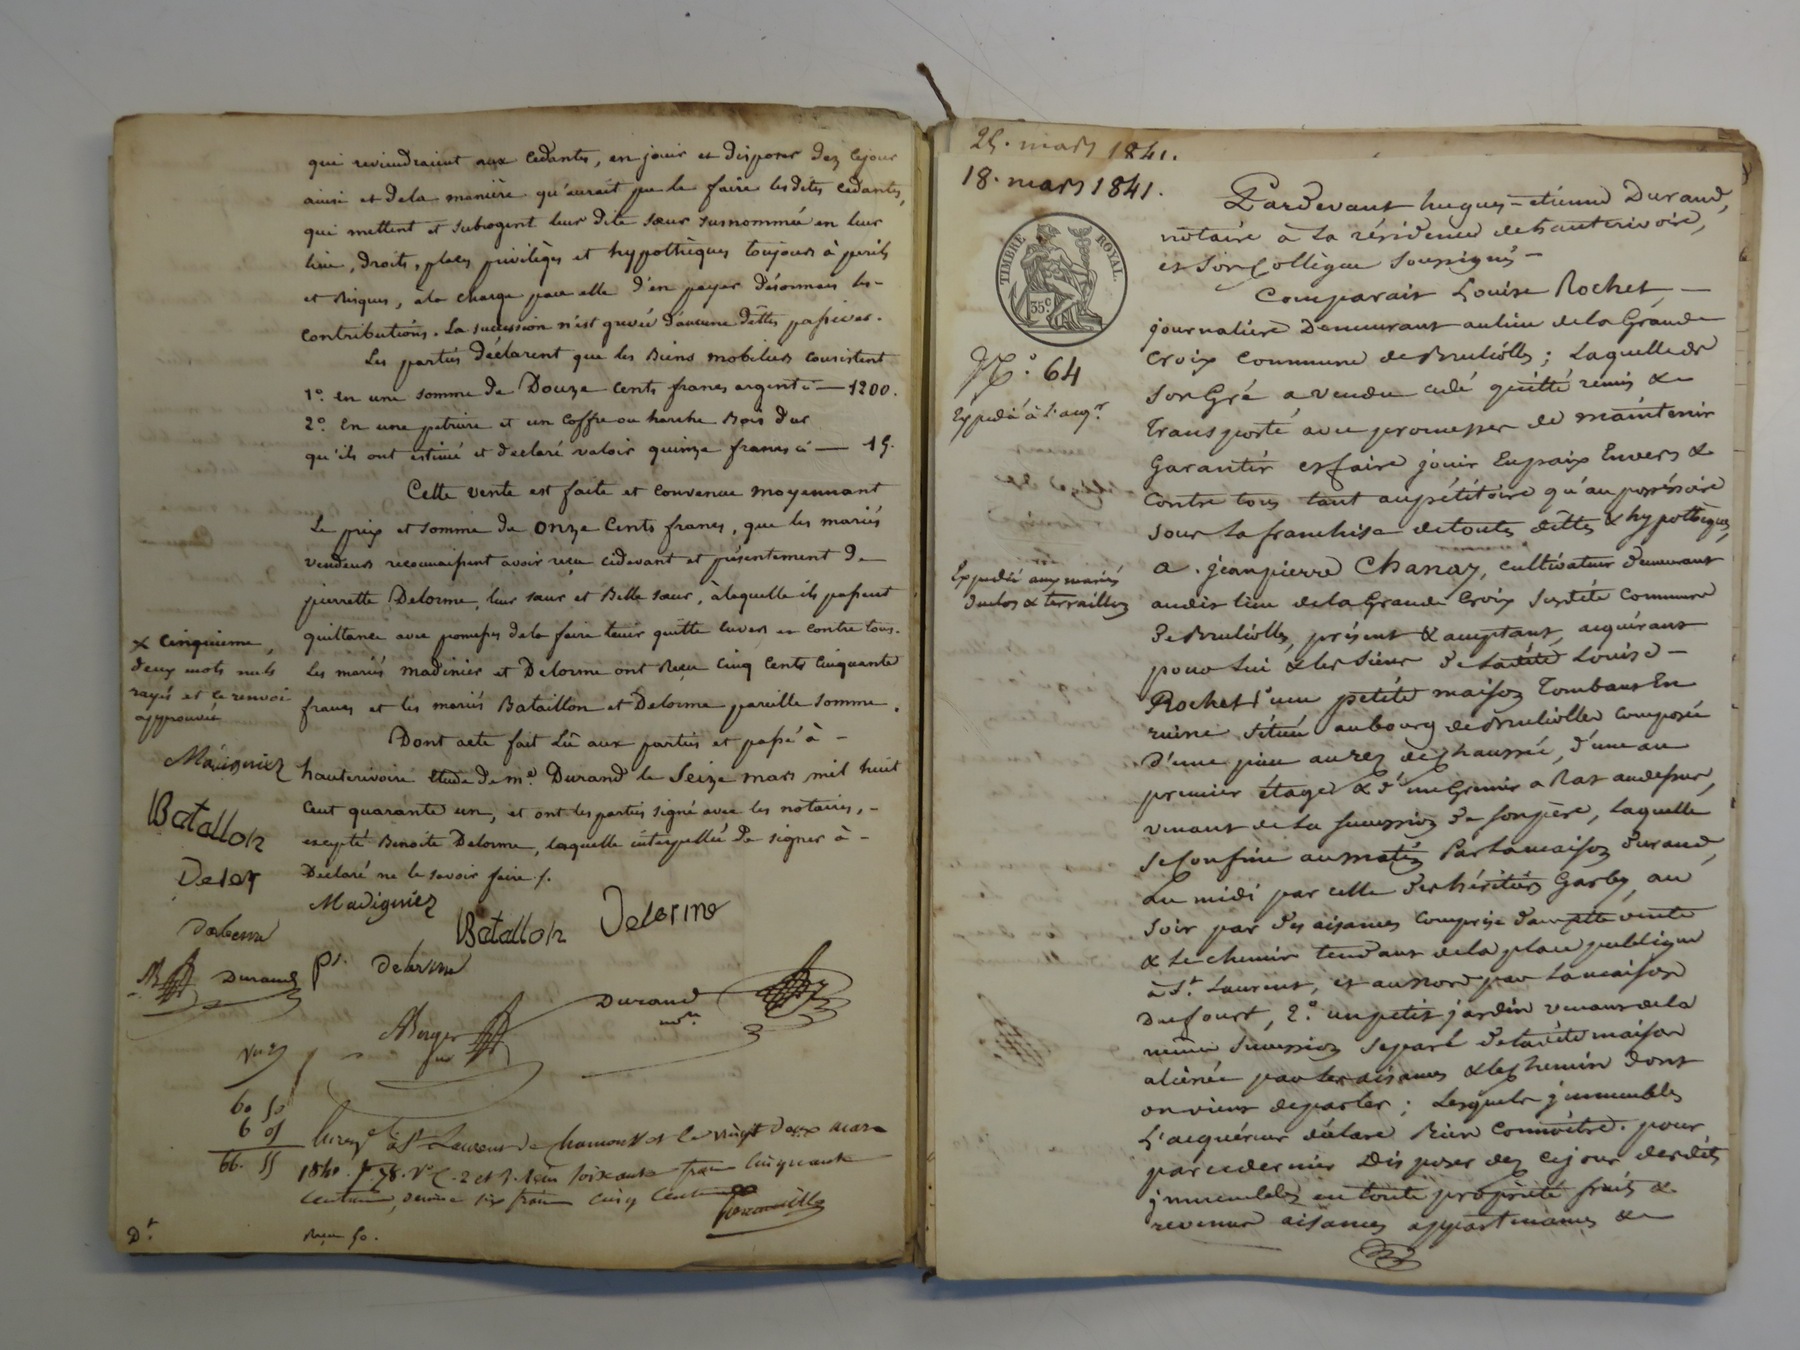 qui reviendraient aux cedantes, en jouir et disposer dez cejour
ainsi et dela manière qu'aurait pu le faire lesdites cedantes,
qui mettent et subrogent leur dite sœur surnommée en leur
lieu, droits, places privilèges et hypothèques toujours à perils
et Risques, ala charge par elle d'en payer désormais les-
contributions. La succession n'est grevée d'aucune dettes passives.
Les parties déclarent que les Biens mobiliers consistent
1°. en une somme de Douze cents francs argent ci — 1200.
2°. En une petrire et un coffre ou harche Bois dur
qu'ils ont estimé et declaré valoir quinze francs ci — 15.
Cette vente est faite et convenue moyennant
Le prix et somme de onze cents francs, que les mariés
vendeurs reconnaissent avoir reçu cidevant et présentement de
pierrette Delorme, leur sœur et Belle sœur, àlaquelle ils passent
quittance avec promesses dela faire tenir quitte envers et contre tous.
Les mariés madinier et Delorme ont Reçu cinq cents cinquante
francs et les mariés Bataillon et Delorme pareille somme.
Dont acte fait Lû aux parties et passé à -
hauterivoire étude de me. Durand le Seize mars mil huit
cent quarante un, et ont les parties signé avec les notaires, -
excepté Benoite Delorme, laquelle interpellée de signer à -
Déclaré ne le savoir faire ./.
x cinquieme,
deux mots nuls
rayés et le renvoi
approuvé
Batallon
Delor
Durand
Batallon Delorme
pre. delorme
Durand
Berger
60 50
6 05
66. 55
Enreg.é à St Laurent de chamousset le vingt deux mars
1841. fo. 78. Vo. C. 2 et 3. Reçu soixante francs cinquante
centimes, decime six francs cinq centimes
Dt.
Reçu 50.
25. mars 1841.
18. mars 1841.
TIMBRE ROYAL
35c
No. 64
Expedié à l'acqr.
Expedié aux mariés
duclos & terraillon
Pardevant hugues-etienne Durand,
notaire à la résidence de hauterivoire,
et son Collègue soussignés -
Comparait Louise Rochet, -
journalière Demeurant au lieu dela Grande
Croix commune de Brullioles; Laquelle de
son Gré a vendu cédé quitté remis &
transporté avec promesses de maintenir
Garantir et faire jouir En paix Envers &
Contre tous tant au pétitoire qu'au possessoire
sous la franchise de toutes dettes & hypothèques,
a. jeanpierre Chanay, cultivateur demeurant
audit lieu dela Grande Croix susdite commune
de Brullioles, présent & acceptant, acquérant
pour lui & les siens de ladite Louise -
Rochet 1° une petite maison Tombant En
ruine située au bourg de Brullioles composée
D'une pièce au rez de chaussée, d'une au
premier étage & d'un Grenier a Rat au dessus,
venant de la succession de son père, Laquelle
se confine au matin Par la maison durand,
au midi par celle des héritiers Garby, au
soir par des aisances comprise dans cette vente
& Le chemin tendant dela place publique
à St. Laurent, et au nord par la maison
Dufourt, 2.° un petit jardin venant de la
même succession séparé de ladite maison
aliénée par les aisances & le chemin dont
on vient de parler; Lesquels jmmeubles
L'acquéreur déclare Bien connoître. pour
par ce dernier Disposer dez cejour desdits
jmmeubles en toute propriété fruits &
revenus aisances appartenances &